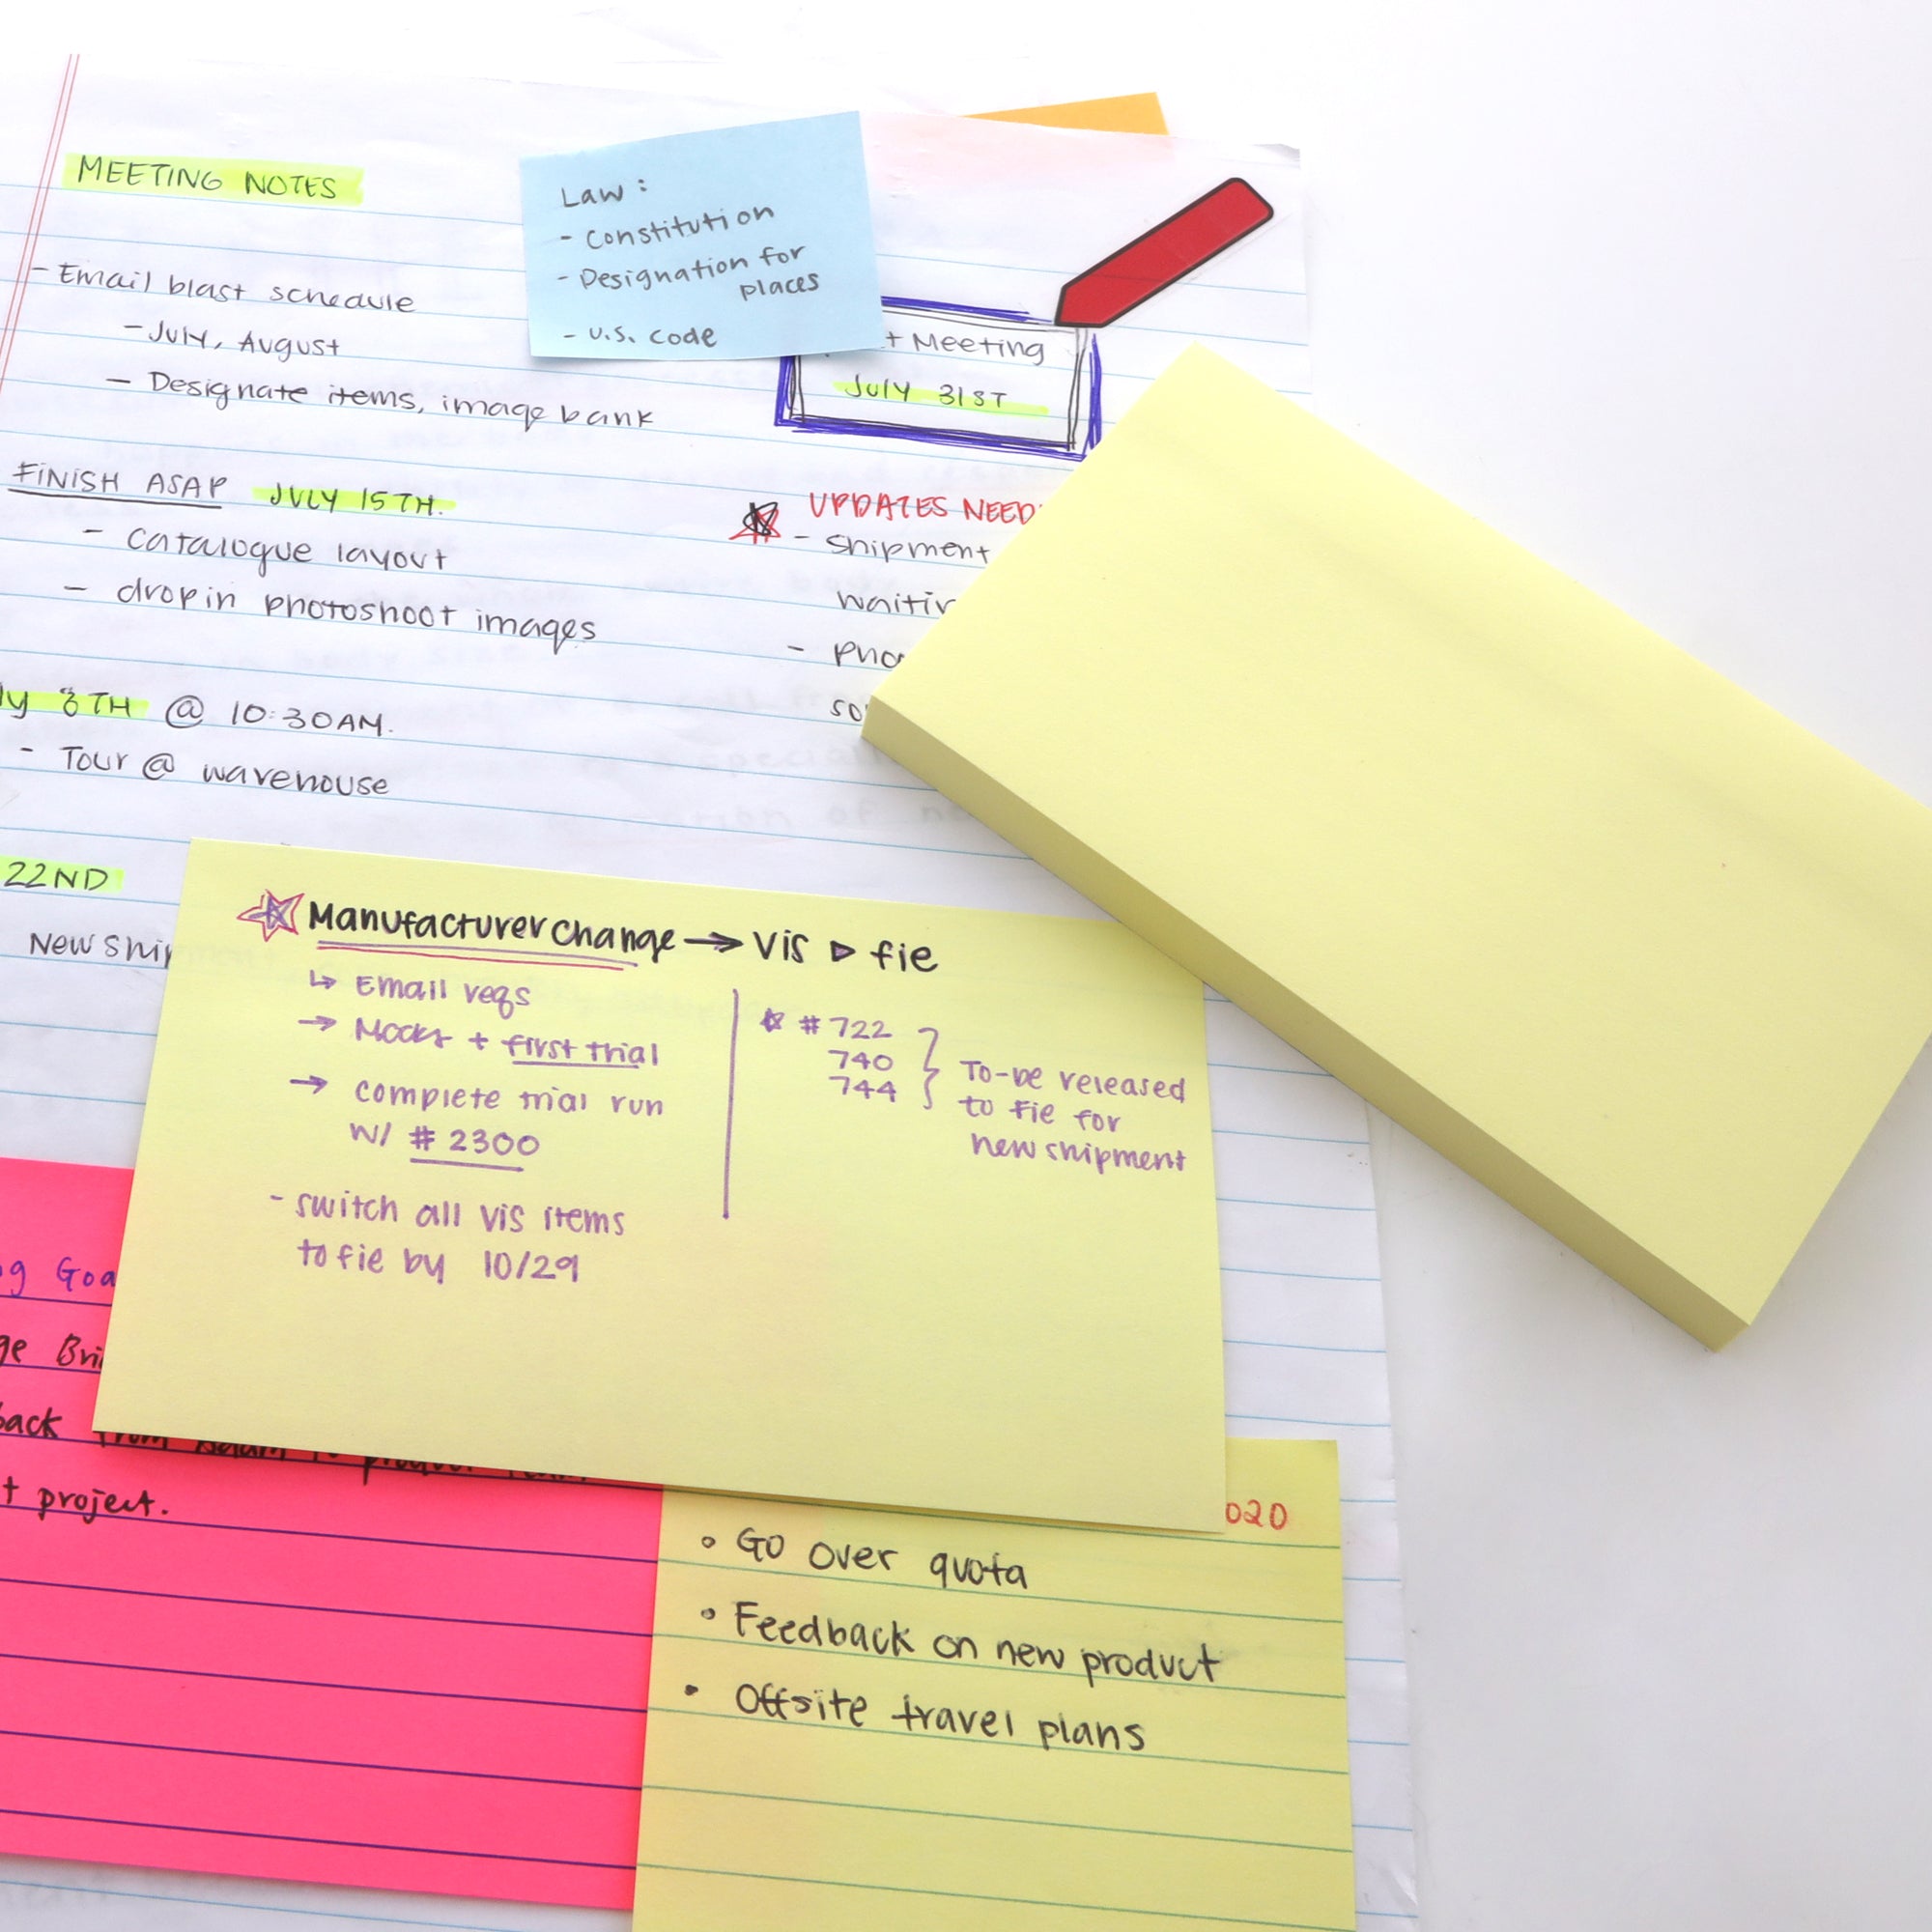 MEETING NOTES
- Email blast schedule
- July, August
- Designate items, image bank
FINISH ASAP JULY 15TH.
- Catalogue layout
- drop in photoshoot images
8TH @ 10:30AM.
- Tour @ warehouse
22ND
New
Law:
- Constitution
- Designation for
places
- U.S. Code
Meeting
July 31ST
UPDATES
- Shipment
-
Manufacturer change → Vis ▷ fie
↳ Email reqs
→ Mocks + first trial
→ complete trial run
W/ # 2300
- switch all vis items
to fie by 10/29
# 722
740
744
To-be released
to fie for
new shipment
project.
• Go over quota
• Feedback on new product
• Offsite travel plans